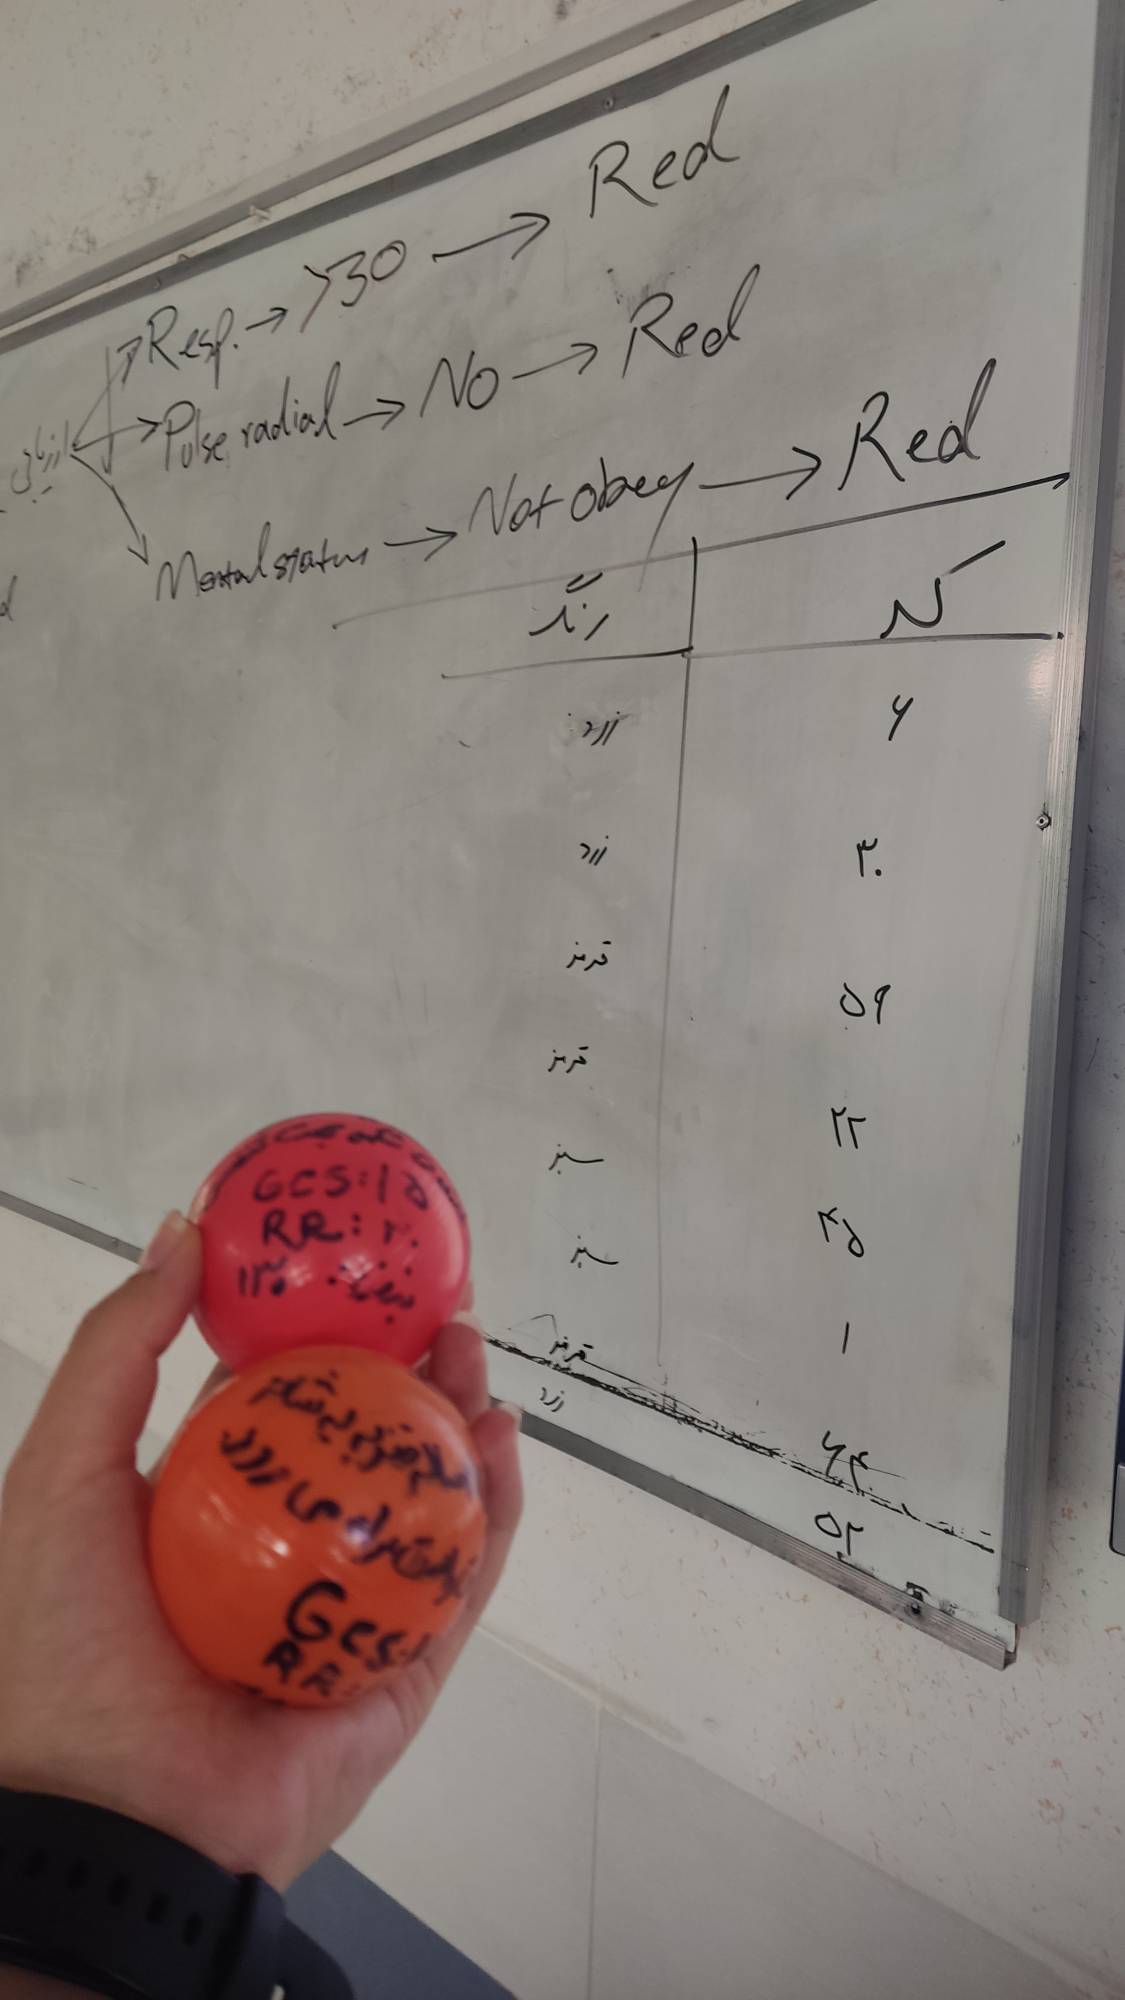 ارزیابی
Resp. → >30 → Red
Pulse radial → No → Red
Mental status → Not obey → Red
رنگ
زرد ۶
زرد ۳۰
قرمز ۵۹
قرمز ۲۲
سبز ۴۵
سبز ۱
قرمز ۶۴
زرد ۵۲
GCS:۱۵
RR: ۲۰
نبض: ۱۲۰
راه می رود
GCS:
RR: